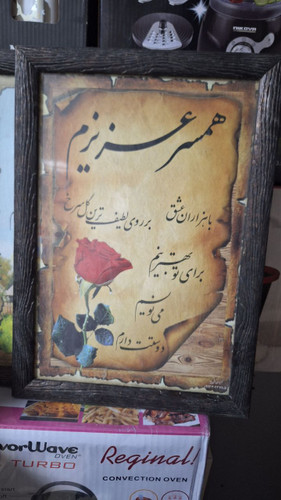 همسر عزیزم
با هزاران عشق
بر روی لطیف ترین گل سرخ
برای تو بهترینم
می نویسم
دوستت دارم
vorWave
OVEN
TURBO
Reginal!
CONVECTION OVEN